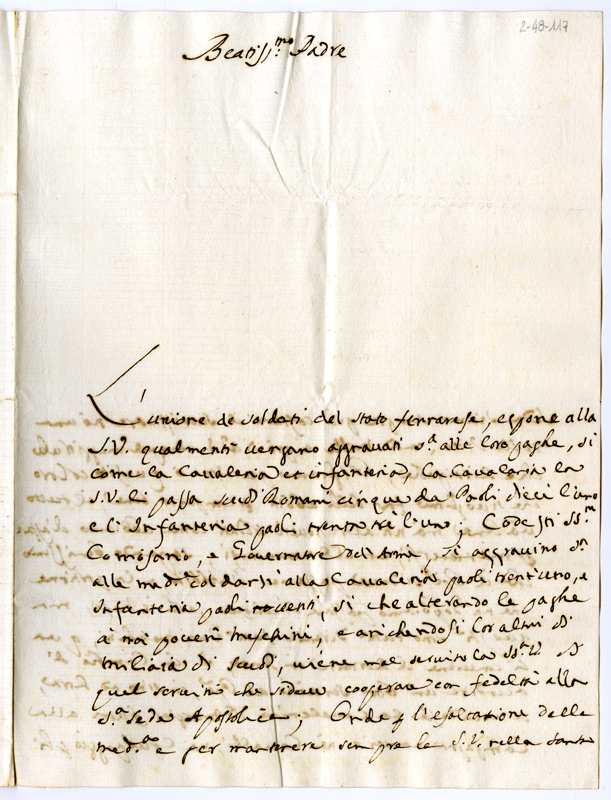 2-48-117
Beatiss.mo Padre
L'unione de soldati del stato ferrarese, espone alla
S.V. qualmenti vengano aggravati s.a alle loro paghe, si
come la Cavaleria et infanteria, la Cavalaria la
S.V. li passa scudi Romani cinque da Paoli dieci l'uno
e l'Infanteria paoli trenta tre l'uno; Codesti SS.ri
Comisario, e Governatore dell'Armi, si aggravino s.a
alle mad.e col darsi alla Cavaleria paoli trent'uno, e
Infanteria paoli venti, si che alterando le paghe
à noi poveri meschini, e arichandosi lor altri di
miliaia di scudi, viene mal servito la S.tà V. di
quel servitù che si deve cooperare con fedeltà alla
S.a Sede Apostolica; Onde p l'esaltatione delle
med.me e per mantenere sempre la S.V. nella santa